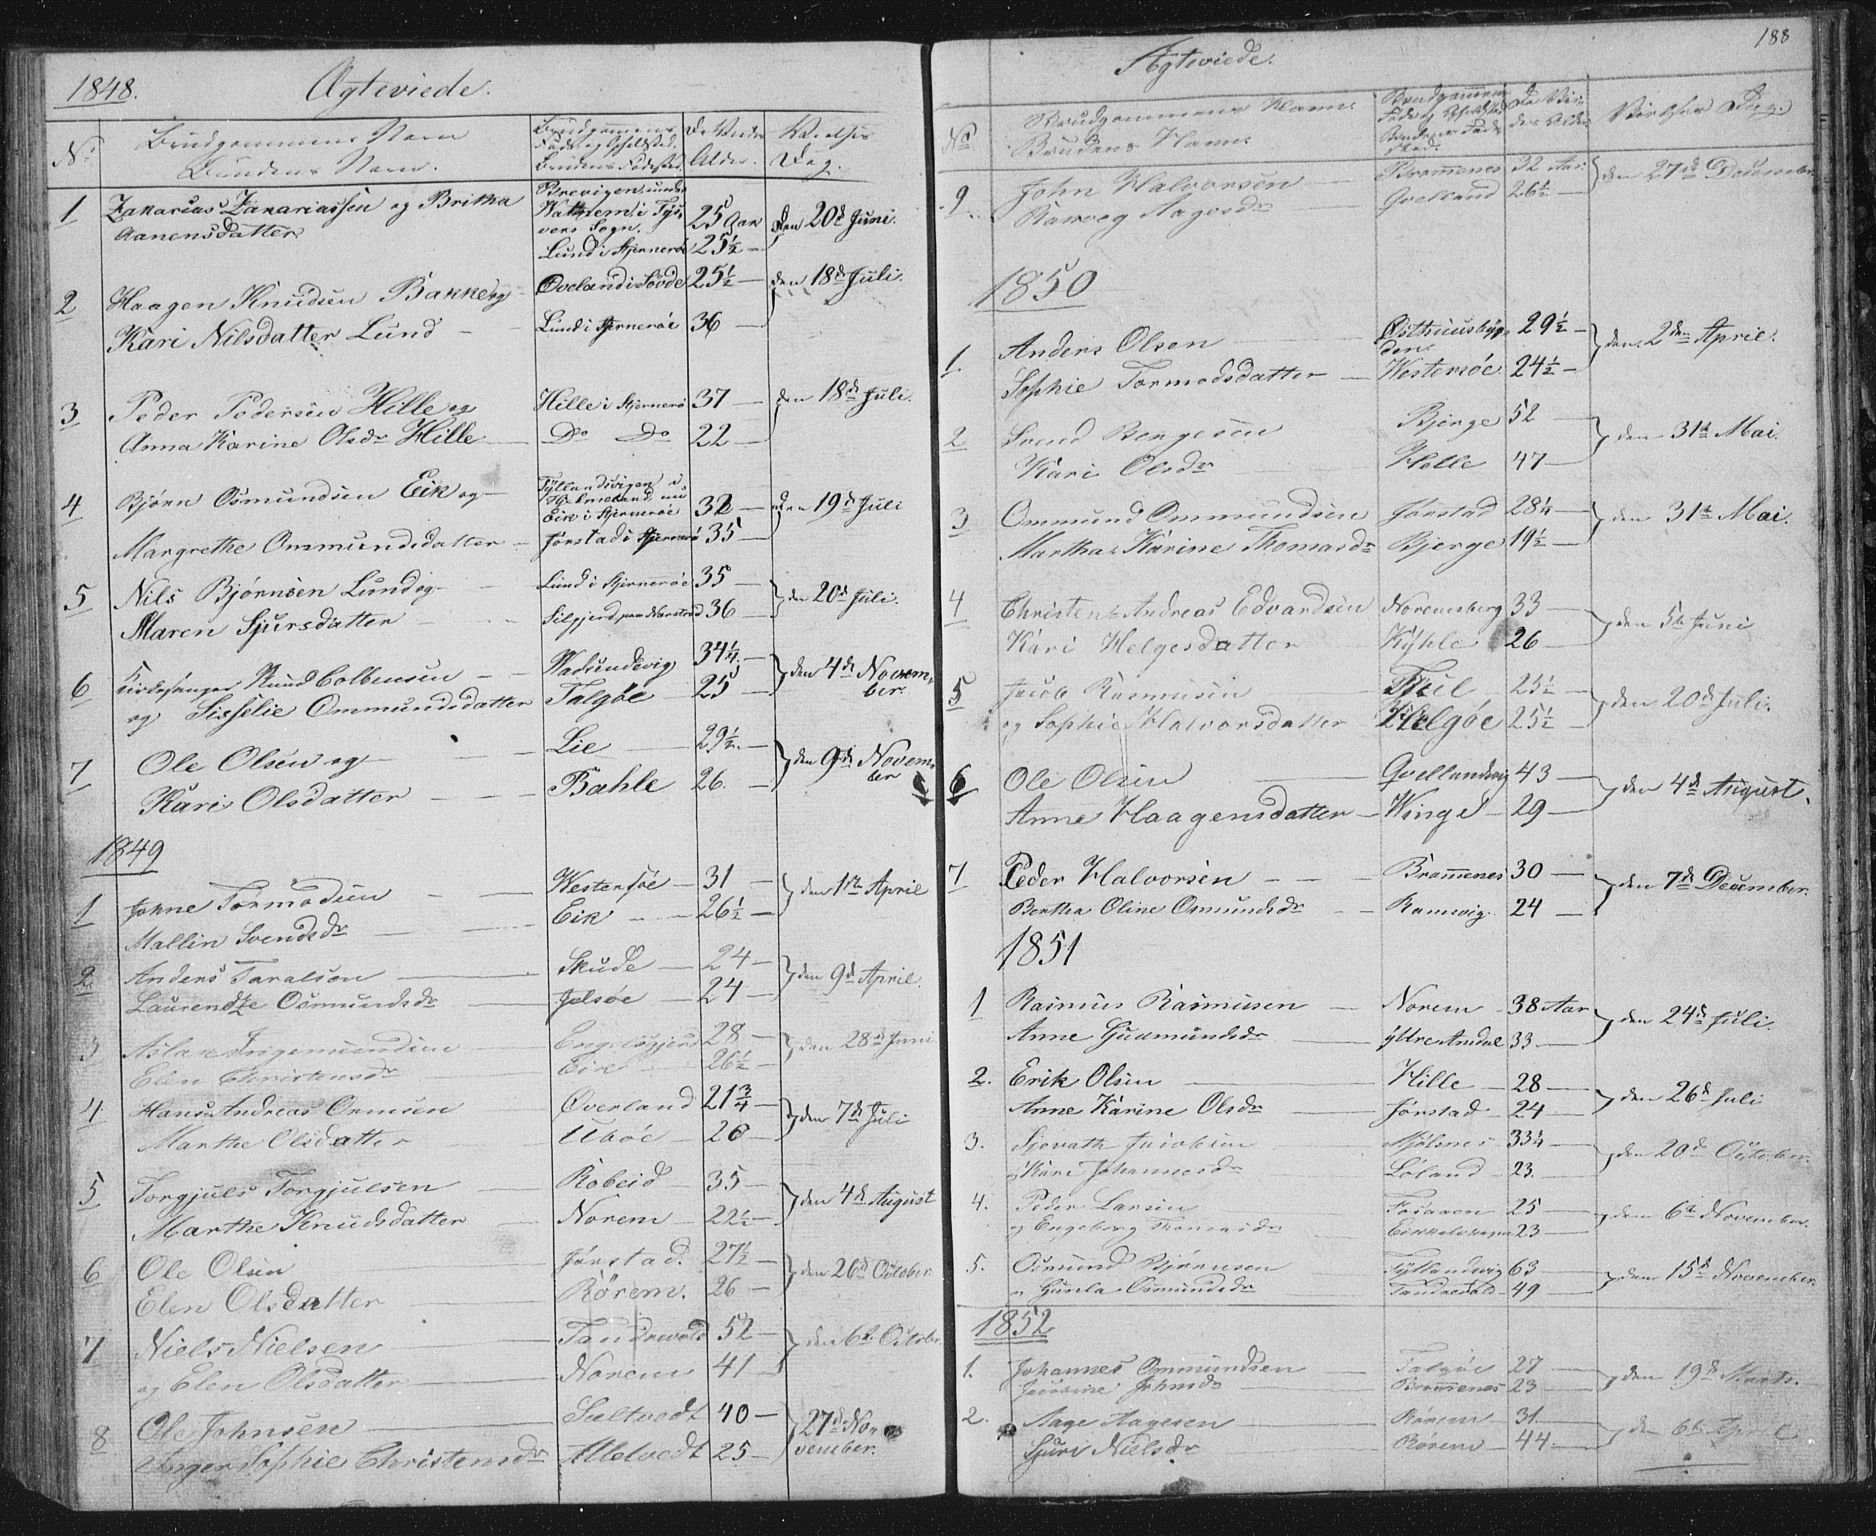 1848.
Ægteviede.
No
Brudgommens Navn
Brudens Navn.
Brudgommens
Fødested, Opholdsted.
Brudens Fødested
De Viedes
Alder.
Vielses
Dag.
1
Zakarias Zakariassen og Britha
Aanensdatter
Brevigen under
Sogn.
Lund i Hjernerøe
25 Aar
25½
den 20de Juni.
2
Haagen Knudsen Bakke og
Kari Nilsdatter Lund
Oveland i Sovde
Lund i Hjernerøe
25½
36
den 18de Juli.
3
Peder Pedersen Hille og
Anna Karine Olsdr Hille
Hille i Hjernerø
Do Do
37
22
den 18de Juli.
4
Bjørn Osmundsen Eik og
Margrethe Ommundsdatter
Tytlandsvigen i
Hjelmeland, nu
Eik i Hjernerøe
Jørstad i Hjernerø
32
35
den 19de Juli
5
Nils Bjørnsen Lund og
Maren Sjursdatter
Lund i Hjernerøe
35
36
den 20de Juli.
6
Kirkesanger Knud Colbensen
og Sisselie Ommundsdatter
Wadsundvig
Talgøe
34¼
25
den 4de Novem-
ber.
7
Ole Olsen og
Kari Olsdatter
Lie
Bahle
29½
26.
den 9de Novem-
ber
1849
1
Johne Tormodsen
Mallin Svendsdr
Westersøe
Eik
31
26½
den 1ste April
2
Anders Taralsen
Laurendze Osmundsdr
Skude
Jelsøe
24
24
den 9de April.
3
Aslak Ingemundsen
Elen Christensdr
Engelsgjerd
Eik
28
26½
den 28de Juni
4
Hans Andreas Ormsen
Marthe Olsdatter
Overland
Ubøe
21¾
26
den 7de Juli
5
Torgjuls Torgjulsen
Marthe Knudsdatter
Robeid
Norem
35
22½
den 4de August
6
Ole Olsen
Elen Olsdatter
Jørstad.
Rørem.
27½
26
den 26de October
7
Niels Nielsen
og Elen Olsdatter
Tandrevold
Norem
52
41
den 6te Octobr.
8
Ole Johnsen
Inger Sophie Christensdr
Saltvedt
Alvedt
40
25
27de No-
vember.
188
Ægteviede.
No
Brudgommens Navn.
Brudens Navn.
Vielses Dag.
9
John Halvorsen
Ranveg Aagesdr
Bramenes
Gvelland
32 Aar.
26½
den 27de December
1850
1.
Anders Olsen
Sophie Tormodsdatter
Østhuusbyg-
den
Westersøe
29½
24½
den 2den April.
2
Svend Bergesen
Kari Olsdr
Bjerge
Helle
52
47
den 31te Mai.
3
Ommund Ommundsen
Martha Karine Thomasdr
Jørstad
Bjerge
28¼
19½
den 31te Mai.
4
Christen Andreas Edvardsen
Kari Helgesdatter
Noremsberg
Kyhle
33
26
den 5te Juni
5
Jacob Rasmusen
og Sophie Halvorsdatter
Helgøe
25½
25½
den 20de Juli.
6
Ole Olsen
Anne Haagensdatter
Gvellandsvig
Winge
43
29
den 4de August.
7
Peder Halvorsen
Bertha Oline Osmundsdr
Bramenes
Ramsvig.
30
24
den 7de December.
1851
1
Rasmus Rasmusen
Anne Gudmundsdr
Norem
Ydtre Amdal
38 Aar
33
den 24de Juli.
2.
Erik Olsen
Anne Karine Olsdr
Hille
Jørstad
28
24
den 26de Juli
3.
Sjovath Jacobsen
og Kari Johannesdr
Mjølsnes
Loland
33¼
23.
den 20de October.
4.
Peder Larsen
og Engeborg Thomasdr
Fosaaen
25
23
den 6te November.
5.
Osmund Bjørnsen
og Gunla Osmundsdr
Tytlandsvig
Tandrevold
63
49
den 15de November.
1852
1.
Johannes Ommundsen
Jacobine Johnsdr
Talgøe
Bramenes
27
23
den 19de Marts.
2.
Aage Aagesen
Guri Nielsdr
Rørem
Rørem
31
44
den 6te April